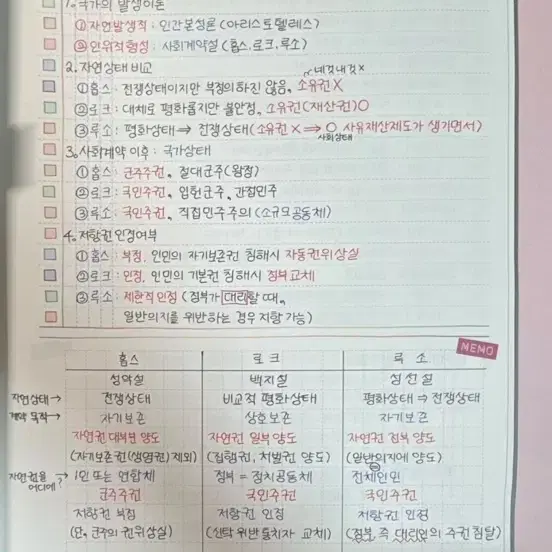 1. 국가의 발생이론
①자연발생적 : 인간본성론 (아리스토텔레스)
②인위적형성 : 사회계약설 (홉스.로크.루소)
2. 자연상태 비교
네것내것X
①홉스 : 전쟁상태이지만 부정의하진 않음. 소유권X
②로크 : 대체로 평화롭지만 불안정. 소유권(재산권)O
③루소 : 평화상태 → 전쟁상태 (소유권 X ⇒ O 사유재산제도가 생기면서)
사회상태
3. 사회계약 이후 : 국가상태
①홉스 : 군주주권. 절대군주(왕정)
②로크 : 국민주권. 입헌군주. 간접민주
③루소 : 국민주권. 직접민주주의 (소규모공동체)
4. 저항권 인정여부
①홉스 : 부정. 인민의 자기보존권 침해시 자동권위상실
②로크 : 인정. 인민의 기본권 침해시 정부교체
③루소 : 제한적 인정 (정부가 대리할 때.
일반의지를 위반하는 경우 저항 가능)
MEMO
홉스 로크 루소
성악설 백지설 성선설
자연상태→ 전쟁상태 비교적 평화상태 평화상태 ⇒ 전쟁상태
계약 목적→ 자기보존 상호보존 자기보존
자연권 대부분 양도 자연권 일부 양도 자연권 전부 양도
(자기보존권(생명권) 제외) (집행권, 처벌권 양도) (일반의지에 양도)
자연권을 어디에? → 1인 또는 연합체 정부 = 정치공동체 전체인민
군주주권 국민주권 국민주권
저항권 부정 저항권 인정 저항권 인정
(단, 군주의 권위상실) (신탁 위반 통치자 교체) (정부, 즉 대리인의 주권 찬탈)